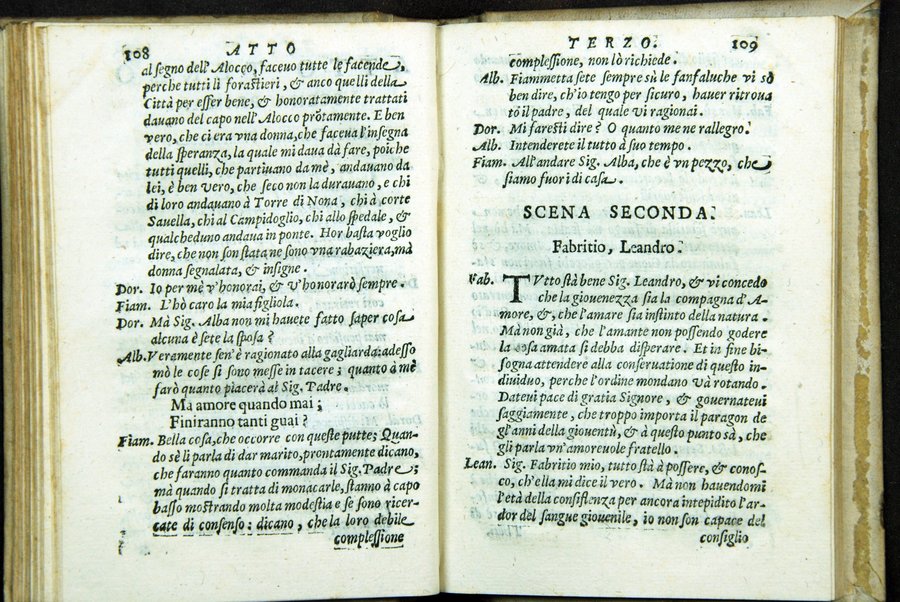 108 ATTO
al segno dell'Alocco, faceuo tutte le facende,
perche tutti li forastieri, & anco quelli della
Città per esser bene, & honoratamente trattati
dauano del capo nell'Alocco prõtamente. E ben
vero, che ci era vna donna, che faceua l'insegna
della speranza, la quale mi daua dà fare, poiche
tutti quelli, che partiuano da mè, andauano da
lei, è ben vero, che seco non la durauano, e chi
di loro andauano à Torre di Nona, chi à corte
Sauella, chi al Campidoglio, chi allo spedale, &
qualcheduno andaua in ponte. Hor basta voglio
dire, che non son stata ne sono vna rabaziera, mà
donna segnalata, & insigne.
Dor. Io per mè v'honorai, & v'honorarò sempre.
Fiam. L'hò caro la mia figliola.
Dor. Mà Sig. Alba non mi hauete fatto saper cosa
alcuna è sete la sposa?
Alb. Veramente sen'è ragionato alla gagliarda: adesso
mò le cose si sono messe in tacere; quanto à mè
farò quanto piacerà al Sig. Padre.
Ma amore quando mai;
Finiranno tanti guai?
Fiam. Bella cosa, che occorre con queste putte; Quan-
do sè li parla di dar marito, prontamente dicano,
che faranno quanto commanda il Sig. Padre;
mà quando si tratta di monacarle, stanno à capo
basso mostrando molta modestia e se sono ricer-
cate di consenso: dicano, che la loro debile
complessione
TERZO. 109
complessione, non lò richiede.
Alb. Fiammetta sete sempre sù le fanfaluche vi sò
ben dire, ch'io tengo per sicuro, hauer ritroua
tò il padre, del quale vi ragionai.
Dor. Mi faresti dire? O quanto me ne rallegro.
Alb. Intenderete il tutto à suo tempo.
Fiam. All'andare Sig. Alba, che è vn pezzo, che
siamo fuori di casa.
SCENA SECONDA.
Fabritio, Leandro.
Fab. TVtto stà bene Sig. Leandro, & vi concedo
che la giouenezza sia la compagna d'A-
more, &, che l'amare sia instinto della natura.
Mà non già, che l'amante non possendo godere
la cosa amata si debba disperare. Et in fine bi-
sogna attendere alla conseruatione di questo in-
diuiduo, perche l'ordine mondano và rotando.
Dateui pace di gratia Signore, & gouernateui
saggiamente, che troppo importa il paragon de
gl'anni della giouentù, & à questo punto sà, che
gli parla vn'amoreuole fratello.
Lean. Sig. Fabritio mio, tutto stà à possere, & conos-
co, ch'ella mi dice il vero. Mà non hauendomi
l'età della consistenza per ancora intepidito l'ar-
dor del sangue giouenile, io non son capace del
consiglio